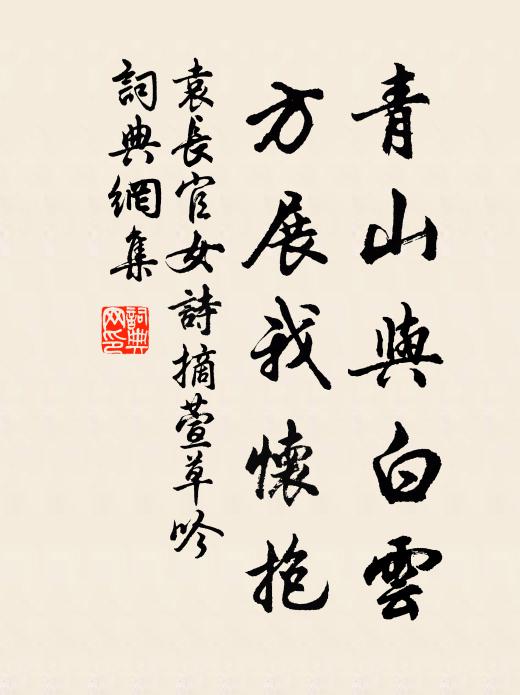 青山與白雲
方展我懷抱
袁長官女詩摘萱草吟
詞典網集
詞典网印